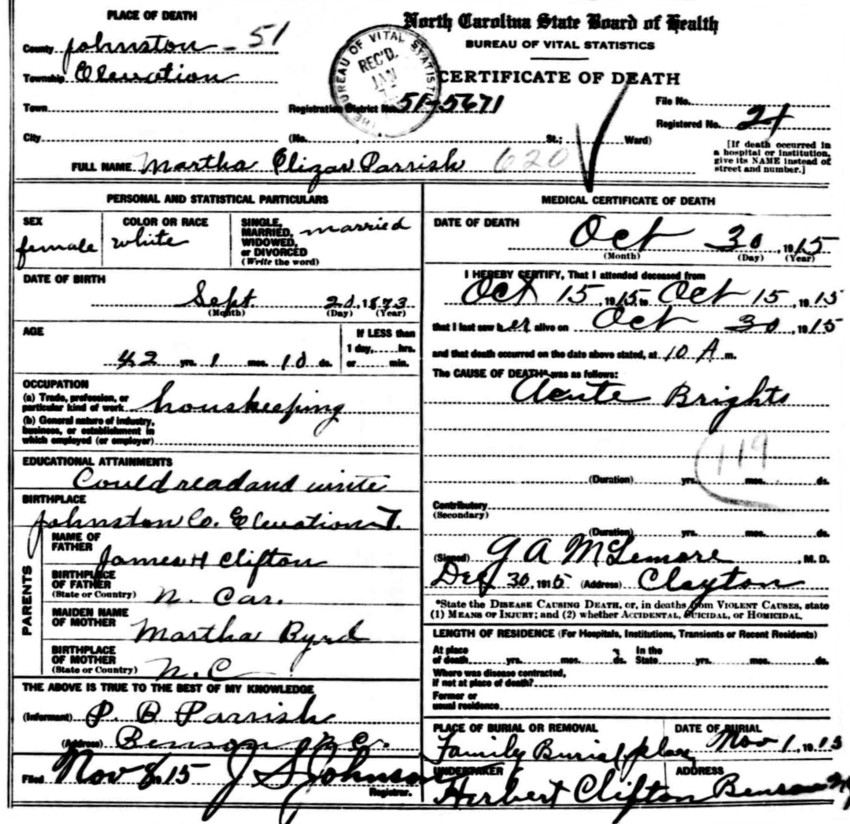 PLACE OF DEATH
County Johnston - 51
Township Elevation
Town
City
North Carolina State Board of Health
BUREAU OF VITAL STATISTICS
CERTIFICATE OF DEATH
BUREAU OF VITAL STATIST
REC'D.
JAN
Registration District No. 51-5671
File No.
Registered No. 24
(No. St.; Ward)
[If death occurred in a hospital or institution, give its NAME instead of street and number.]
FULL NAME Martha Elizar Parrish 620
PERSONAL AND STATISTICAL PARTICULARS
SEX female
COLOR OR RACE white
SINGLE, MARRIED, WIDOWED, or DIVORCED (Write the word) married
DATE OF BIRTH
Sept 20, 1873
(Month) (Day) (Year)
AGE
42 yrs. 1 mos. 10 ds.
If LESS than 1 day, hrs. or min.
OCCUPATION
(a) Trade, profession, or particular kind of work houskeeping
(b) General nature of industry, business, or establishment in which employed (or employer)
EDUCATIONAL ATTAINMENTS
Could read and write
BIRTHPLACE
Johnston Co. Elevation T.
PARENTS
NAME OF FATHER James H Clifton
BIRTHPLACE OF FATHER (State or Country) N. Car.
MAIDEN NAME OF MOTHER Martha Byrd
BIRTHPLACE OF MOTHER (State or Country) N.C
THE ABOVE IS TRUE TO THE BEST OF MY KNOWLEDGE
(Informant) P. B Parrish
(Address) Benson N.C.
Filed Nov 8 15 J S Johnson
Registrar.
MEDICAL CERTIFICATE OF DEATH
DATE OF DEATH
Oct 30, 1915
(Month) (Day) (Year)
I HEREBY CERTIFY, That I attended deceased from
Oct 15, 1915 to Oct 15, 1915
that I last saw her alive on Oct 30, 1915
and that death occurred on the date above stated, at 10 A m.
The CAUSE OF DEATH* was as follows:
Acute Brights
119
(Duration) yrs. mos. ds.
Contributory
(Secondary)
(Duration) yrs. mos. ds.
(Signed) G A McLemore, M. D.
30, 1915 (Address) Clayton
*State the DISEASE CAUSING DEATH, or, in deaths from VIOLENT CAUSES, state
(1) MEANS OF INJURY; and (2) whether ACCIDENTAL, SUICIDAL, or HOMICIDAL.
LENGTH OF RESIDENCE (For Hospitals, Institutions, Transients or Recent Residents)
At place of death yrs. mos. ds. In the State yrs. mos. ds.
Where was disease contracted, if not at place of death?
Former or usual residence
PLACE OF BURIAL OR REMOVAL
Family Burial place
DATE OF BURIAL
Nov 1, 1915
UNDERTAKER
Herbert Clifton
ADDRESS
Benson